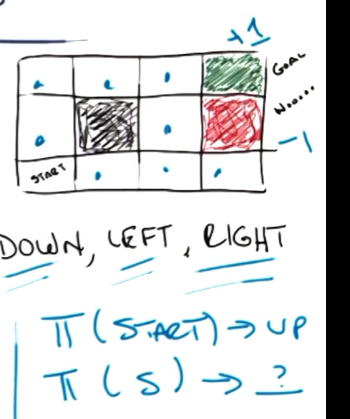 +1
GOAL
NO....
-1
START
DOWN, LEFT, RIGHT
π(START)→UP
π(S)→?